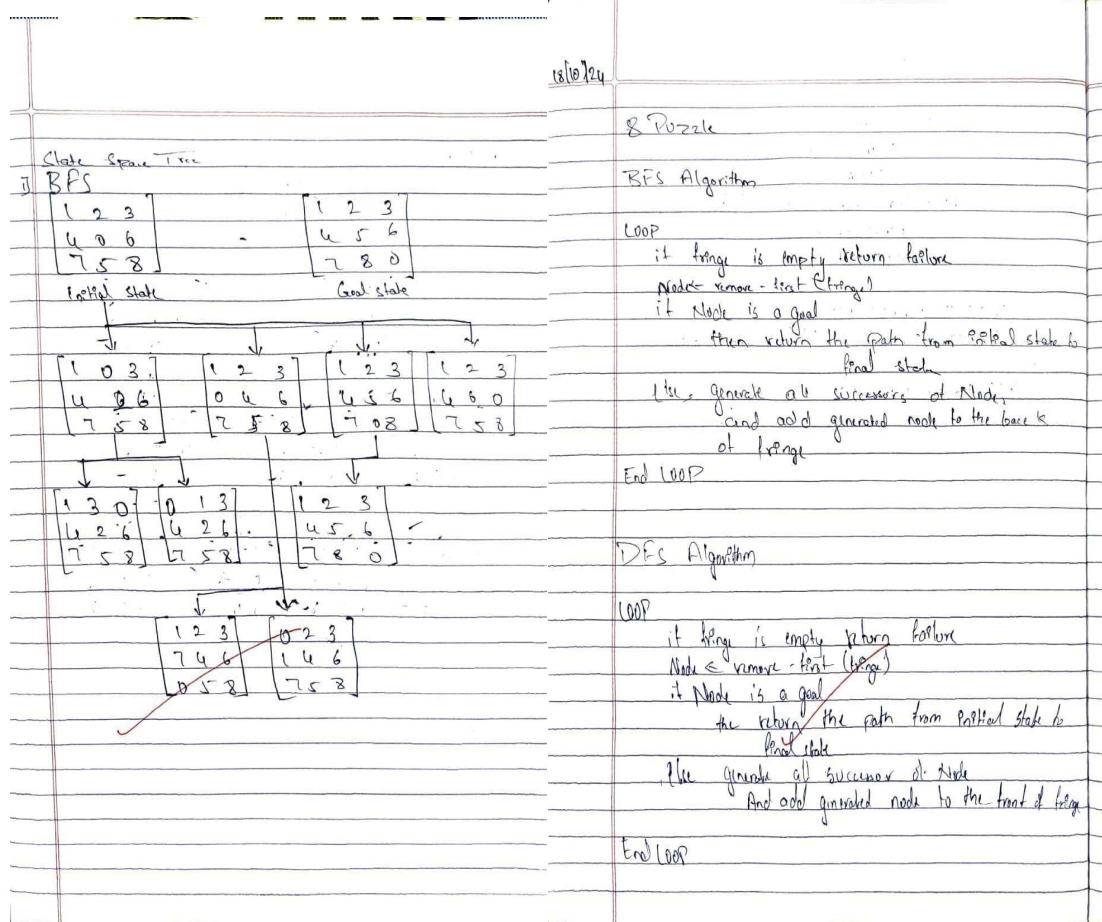 State Space Tree
1) BFS
1 2 3
4 0 6
7 5 8
Initial State
1 2 3
4 5 6
7 8 0
Goal state
1 0 3
4 2 6
7 5 8
1 2 3
0 4 6
7 5 8
1 2 3
4 5 6
7 0 8
1 2 3
4 6 0
7 5 8
1 3 0
4 2 6
7 5 8
0 1 3
4 2 6
7 5 8
1 2 3
4 5 6
7 8 0
1 2 3
7 4 6
0 5 8
0 2 3
1 4 6
7 5 8
18/10/24
8 Puzzle
BFS Algorithm
LOOP
if fringe is empty return failure
Node ← remove-first (fringe)
if Node is a goal
then return the path from initial state to
final state
Else, generate all successors of Node,
and add generated node to the back
of fringe
End LOOP
DFS Algorithm
LOOP
if fringe is empty return failure
Node ← remove-first (fringe)
if Node is a goal
the return the path from initial state to
final state
Else generate all successor of Node
And add generated node to the front of fringe
End LOOP